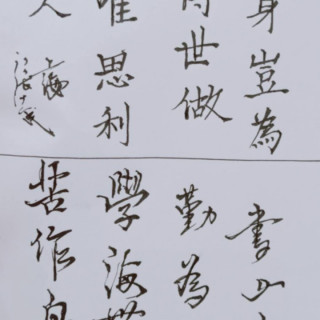 身豈為
世做
唯思利
人
上海
書山
勤為
學海無
苦作舟